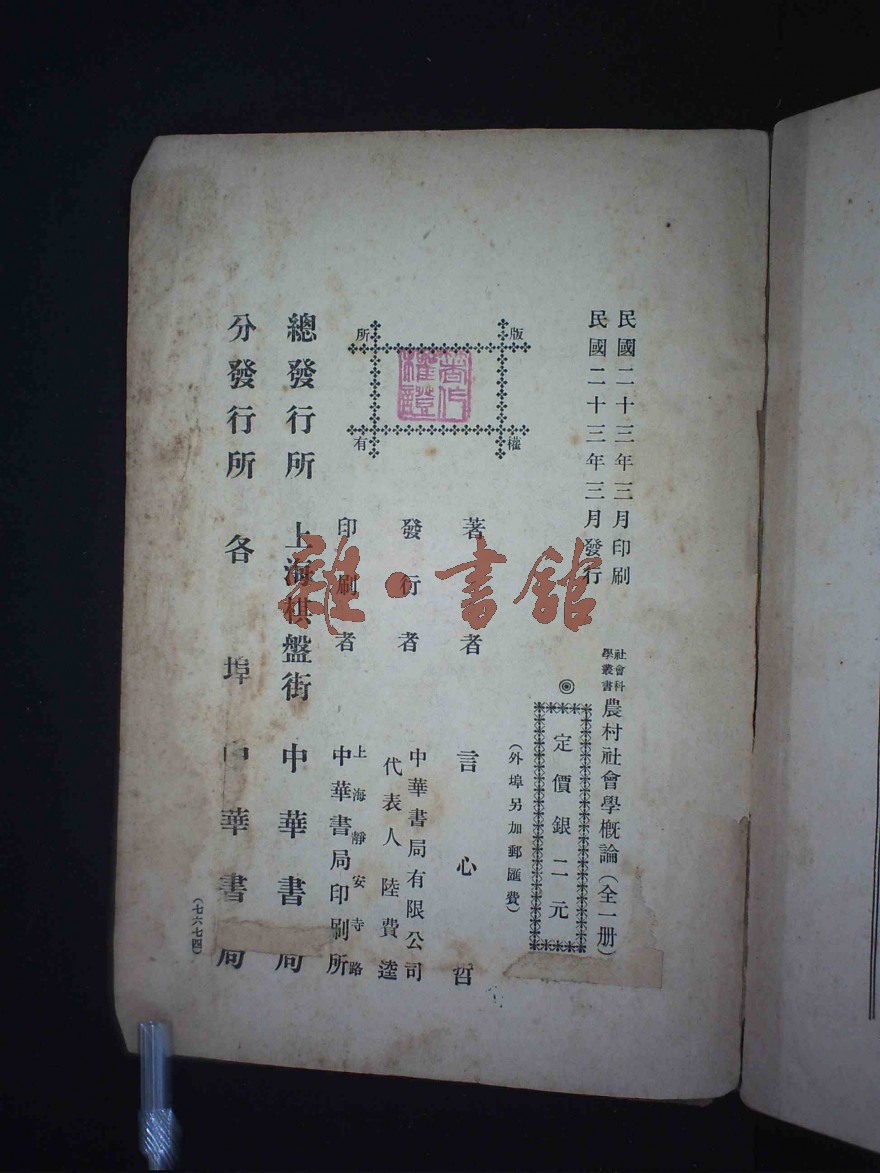 民國二十三年三月印刷
民國二十三年三月發行
社會科學叢書
農村社會學概論（全一册）
◎
定價銀二元
（外埠另加郵匯費）
版權所有
著作權證
著者 言心哲
發行者 中華書局有限公司
代表人 陸費逵
印刷者 上海靜安寺路
中華書局印刷所
總發行所 上海棋盤街 中華書局
分發行所 各埠 中華書局
（七六七四）
雜·書館